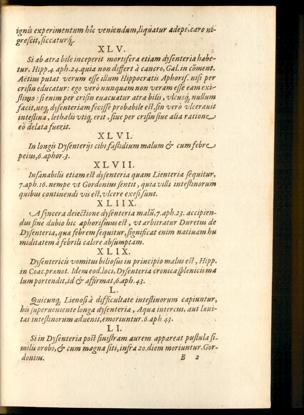 ignis experimentum hîc veniendum, liquatur adeps. caro nigrescit, siccaturq́;
XLV.
Si ab atra bile inceperit mortifera etiam dysenteria habetur. Hipp. 4. aph. 24. quia non differt à cancro, Gal. in cōment.
Aetius putat verum esse illum Hippocratis Aphoris. nisi per
crisin educatur: ego verò nunquam non veram esse eam existimo: si enim per crisin euacuatur atra bilis, vlcusq́; nullum
facit, utq; dysenteriam fecisse probabile est, sin verò vlcerauit
intestina, lethalis vtiq; erit, siue per crisin siue alia ratione
eò delata fuerit.
XLVI.
In longis Dysenterijs cibi fastidium malum & cum febre
peius, 6. aphor. 3.
XLVII.
Insanabilis etiam est dysenteria quam Lienteria sequitur,
7. aph. 16. nempe vt Gordonius sentit, quia villi intestinorum
quibus continendi vis est, vlcere exesi sunt.
XLIIX.
A syncera deiectione dysenteria malū, 7. aph. 23. accipiendus sine dubio hic aphorismus est, vt arbitratur Duretus de
Dysenteria, qua febrem sequitur, significat enim natiuam humiditatem à febrili calore absumptam.
XLIX.
Dysentericis vomitus biliosus in principio malus est, Hipp.
in Coac. prænot. Idem eod. loco, Dysenteria cronica splenicis malum portendit, id & affirmat, 6. aph. 43.
L.
Quicunq; Lienosi à difficultate intestinorum capiuntur,
his superueniente longa dysenteria, Aqua intercus, aut leuitas intestinorum aduenit, & moriuntur. 6. aph. 43.
LI.
Si in Dysenteria post sinistram aurem appareat pustula similis orobo, & cum magna siti, infra 20. diem moriuntur. Gordonius.
B 2